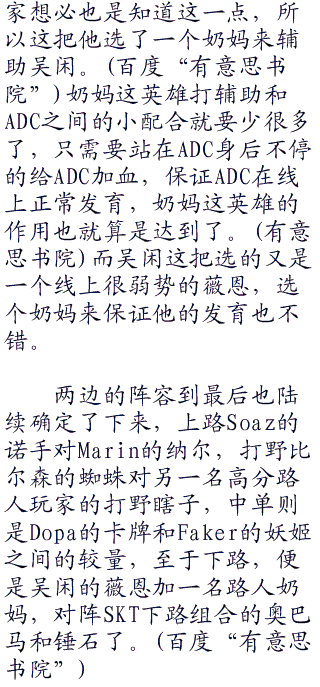 家想必也是知道这一点，所
以这把他选了一个奶妈来辅
助吴闲。(百度“有意思书
院”)奶妈这英雄打辅助和
ADC之间的小配合就要少很多
了，只需要站在ADC身后不停
的给ADC加血，保证ADC在线
上正常发育，奶妈这英雄的
作用也就算是达到了。(有意
思书院)而吴闲这把选的又是
一个线上很弱势的薇恩，选
个奶妈来保证他的发育也不
错。
两边的阵容到最后也陆
续确定了下来，上路Soaz的
诺手对Marin的纳尔，打野比
尔森的蜘蛛对另一名高分路
人玩家的打野瞎子，中单则
是Dopa的卡牌和Faker的妖姬
之间的较量，至于下路，便
是吴闲的薇恩加一名路人奶
妈，对阵SKT下路组合的奥巴
马和锤石了。(百度“有意思
书院”)